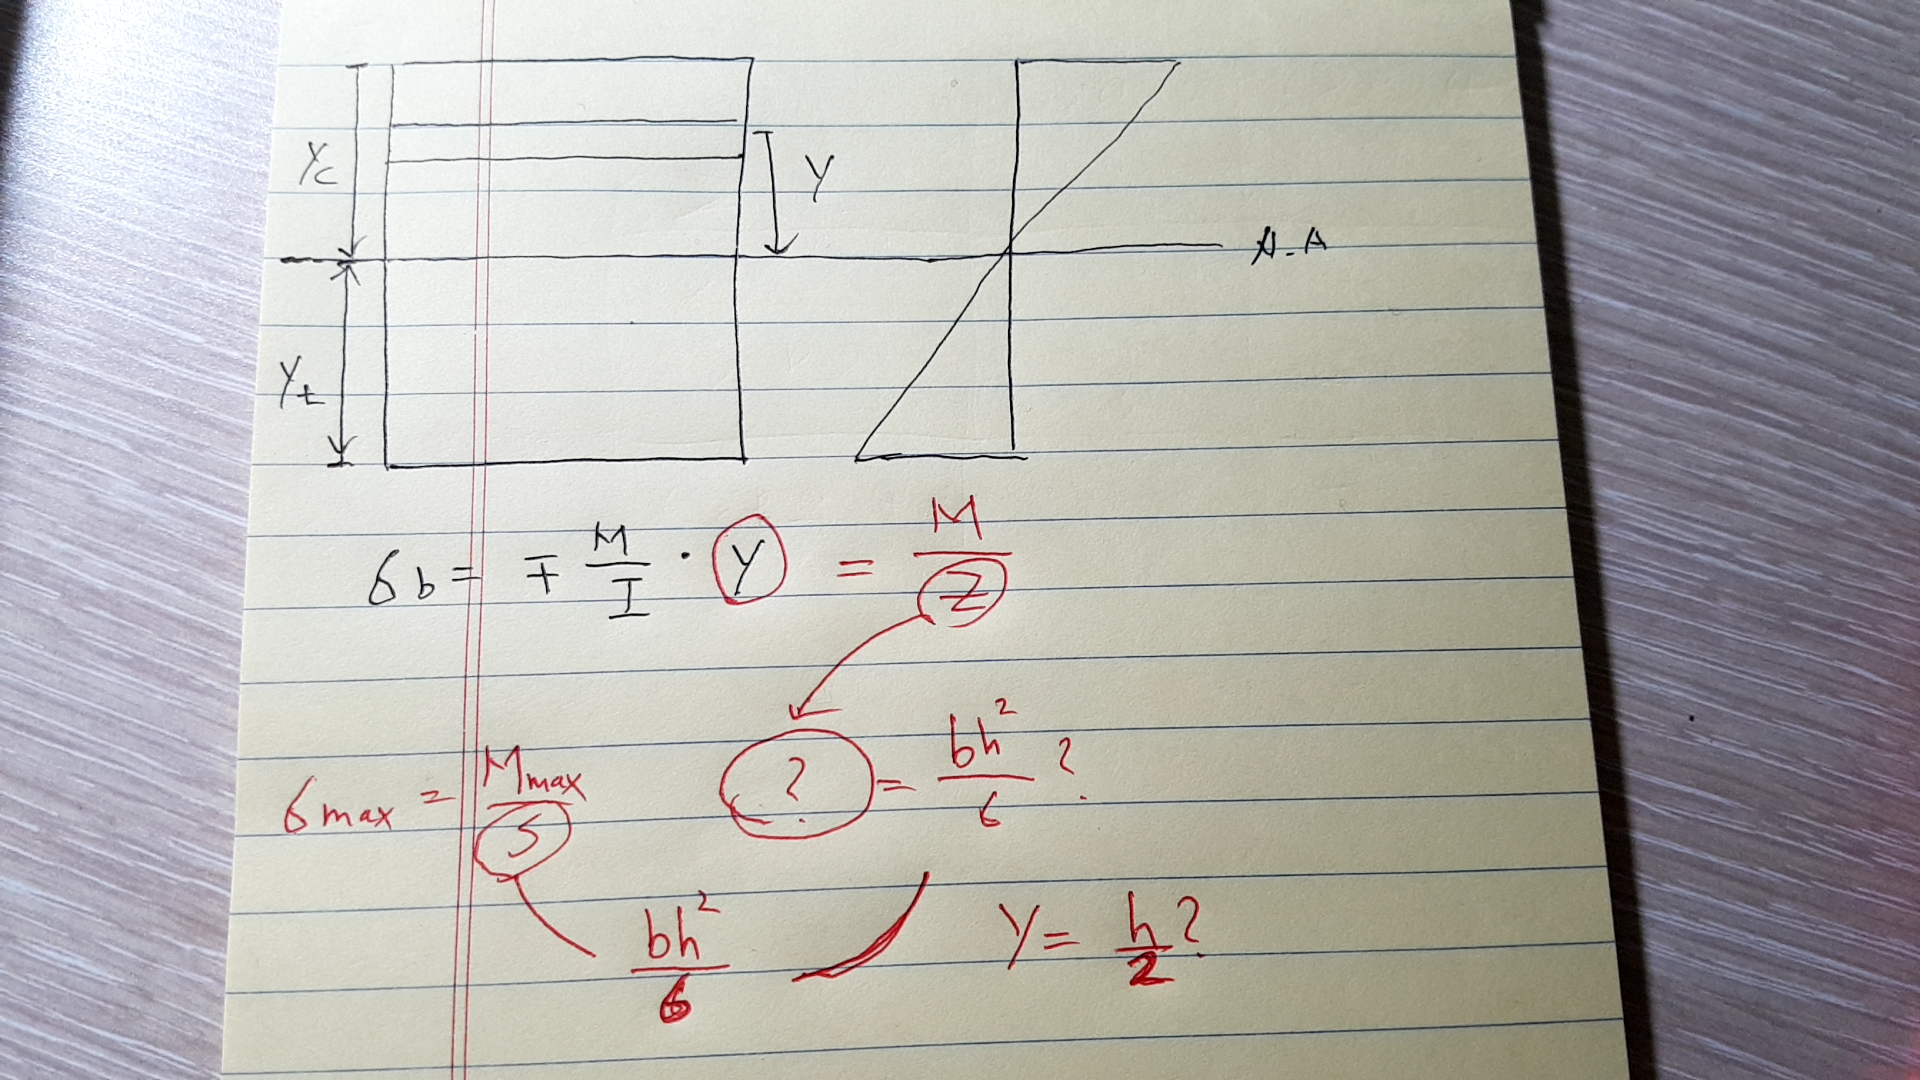 Yc
Y
N.A
Yt
σb = ∓ M/I · y = M/Z
σmax = Mmax/S
? = bh²/6 ?
bh²/6
Y = h/2 ?